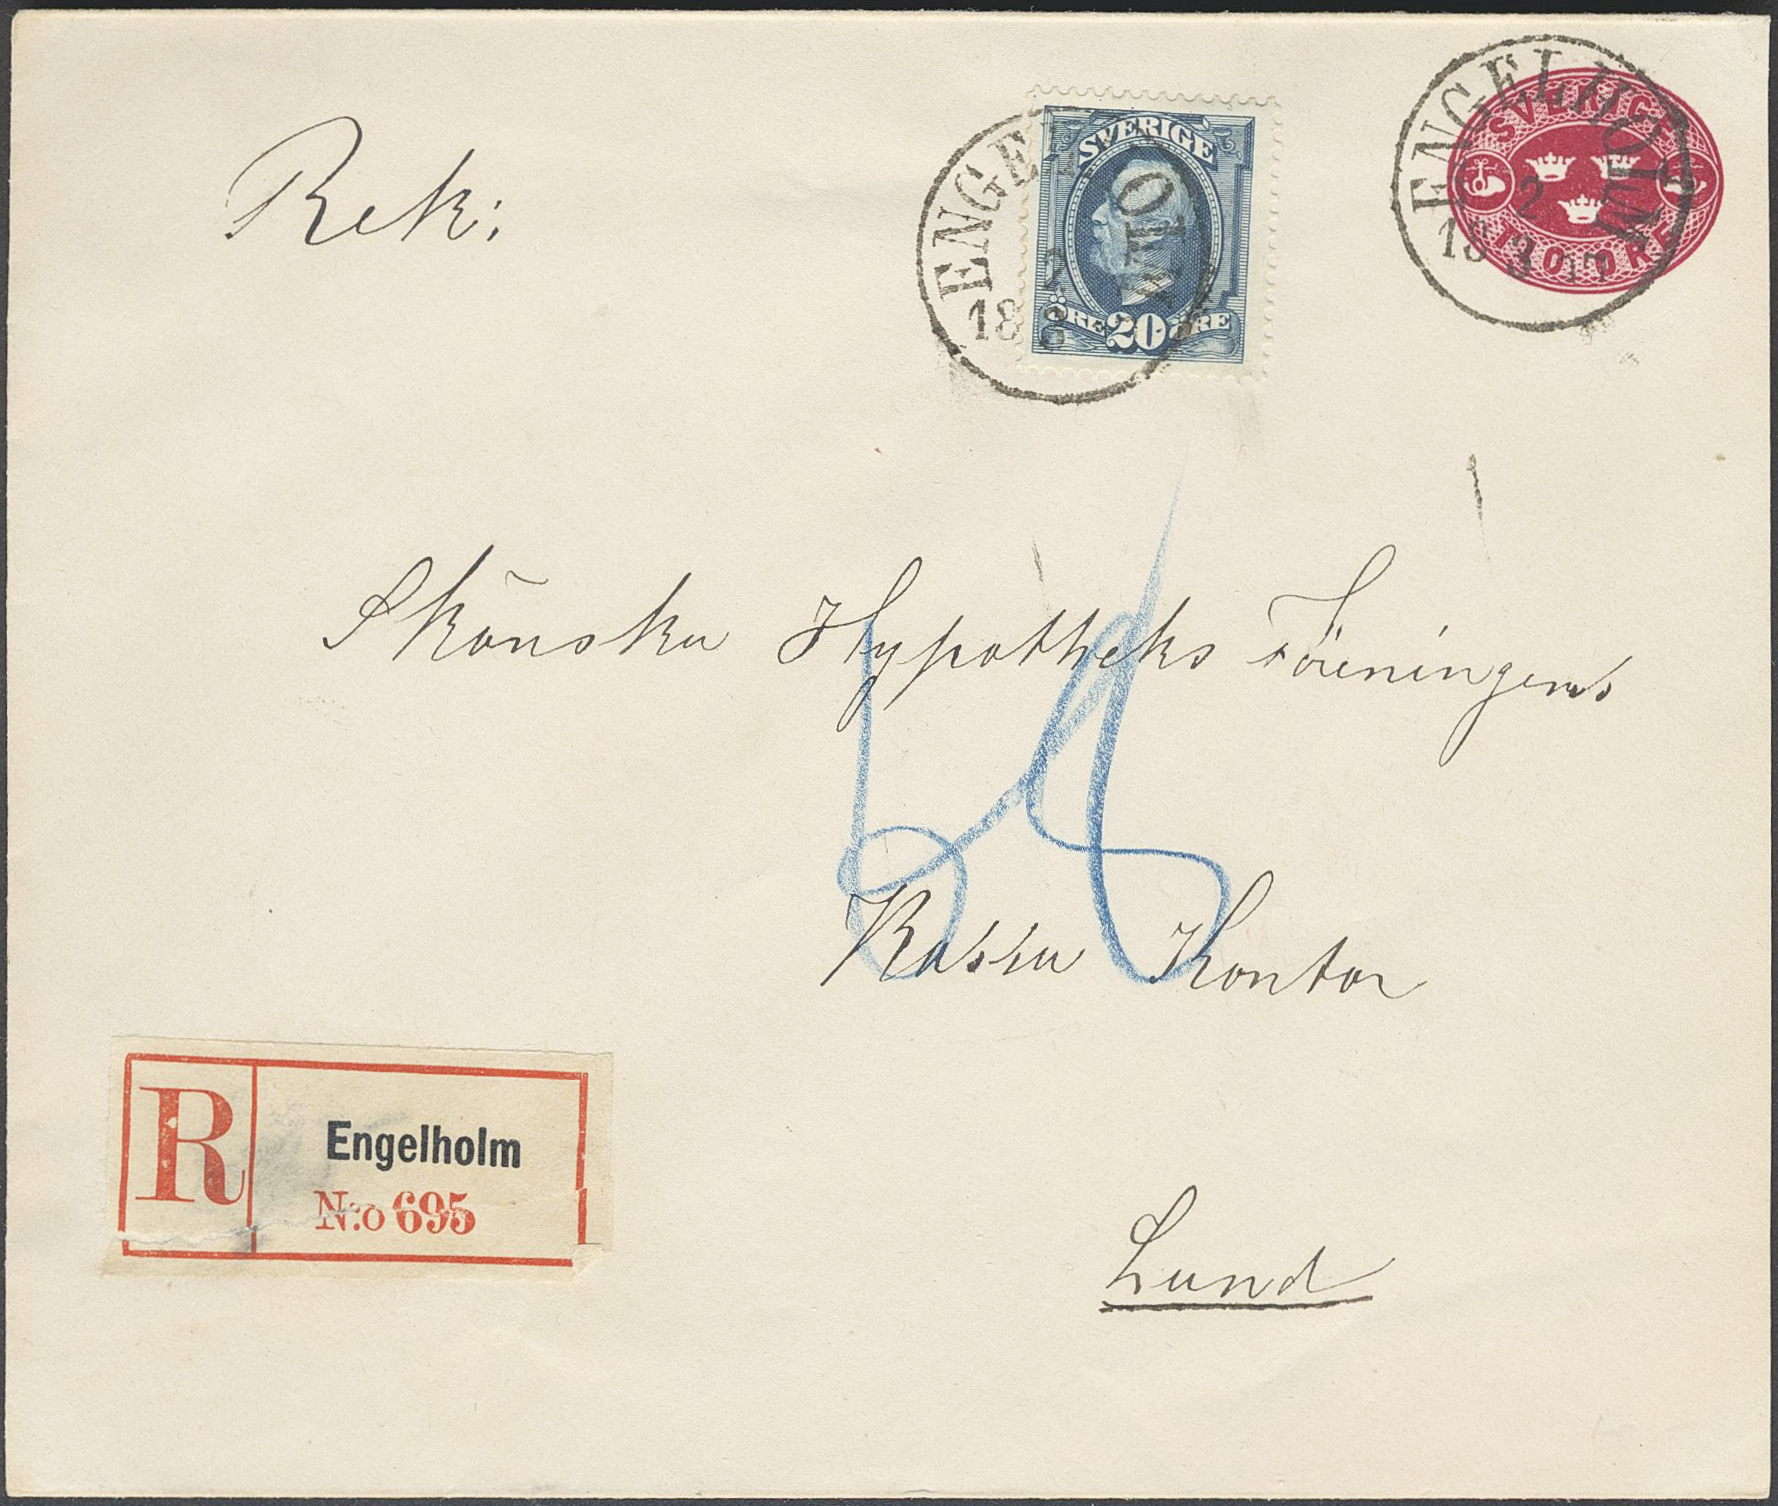 Rek:
ENGELHOLM
2
18 8
SVERIGE
ÖRE 20 ÖRE
ENGELHOLM
2
SVERIGE
10 ÖRE
Skånska Hypotheks Föreningens
Kassa Kontor
R
Engelholm
N:o 695
Lund